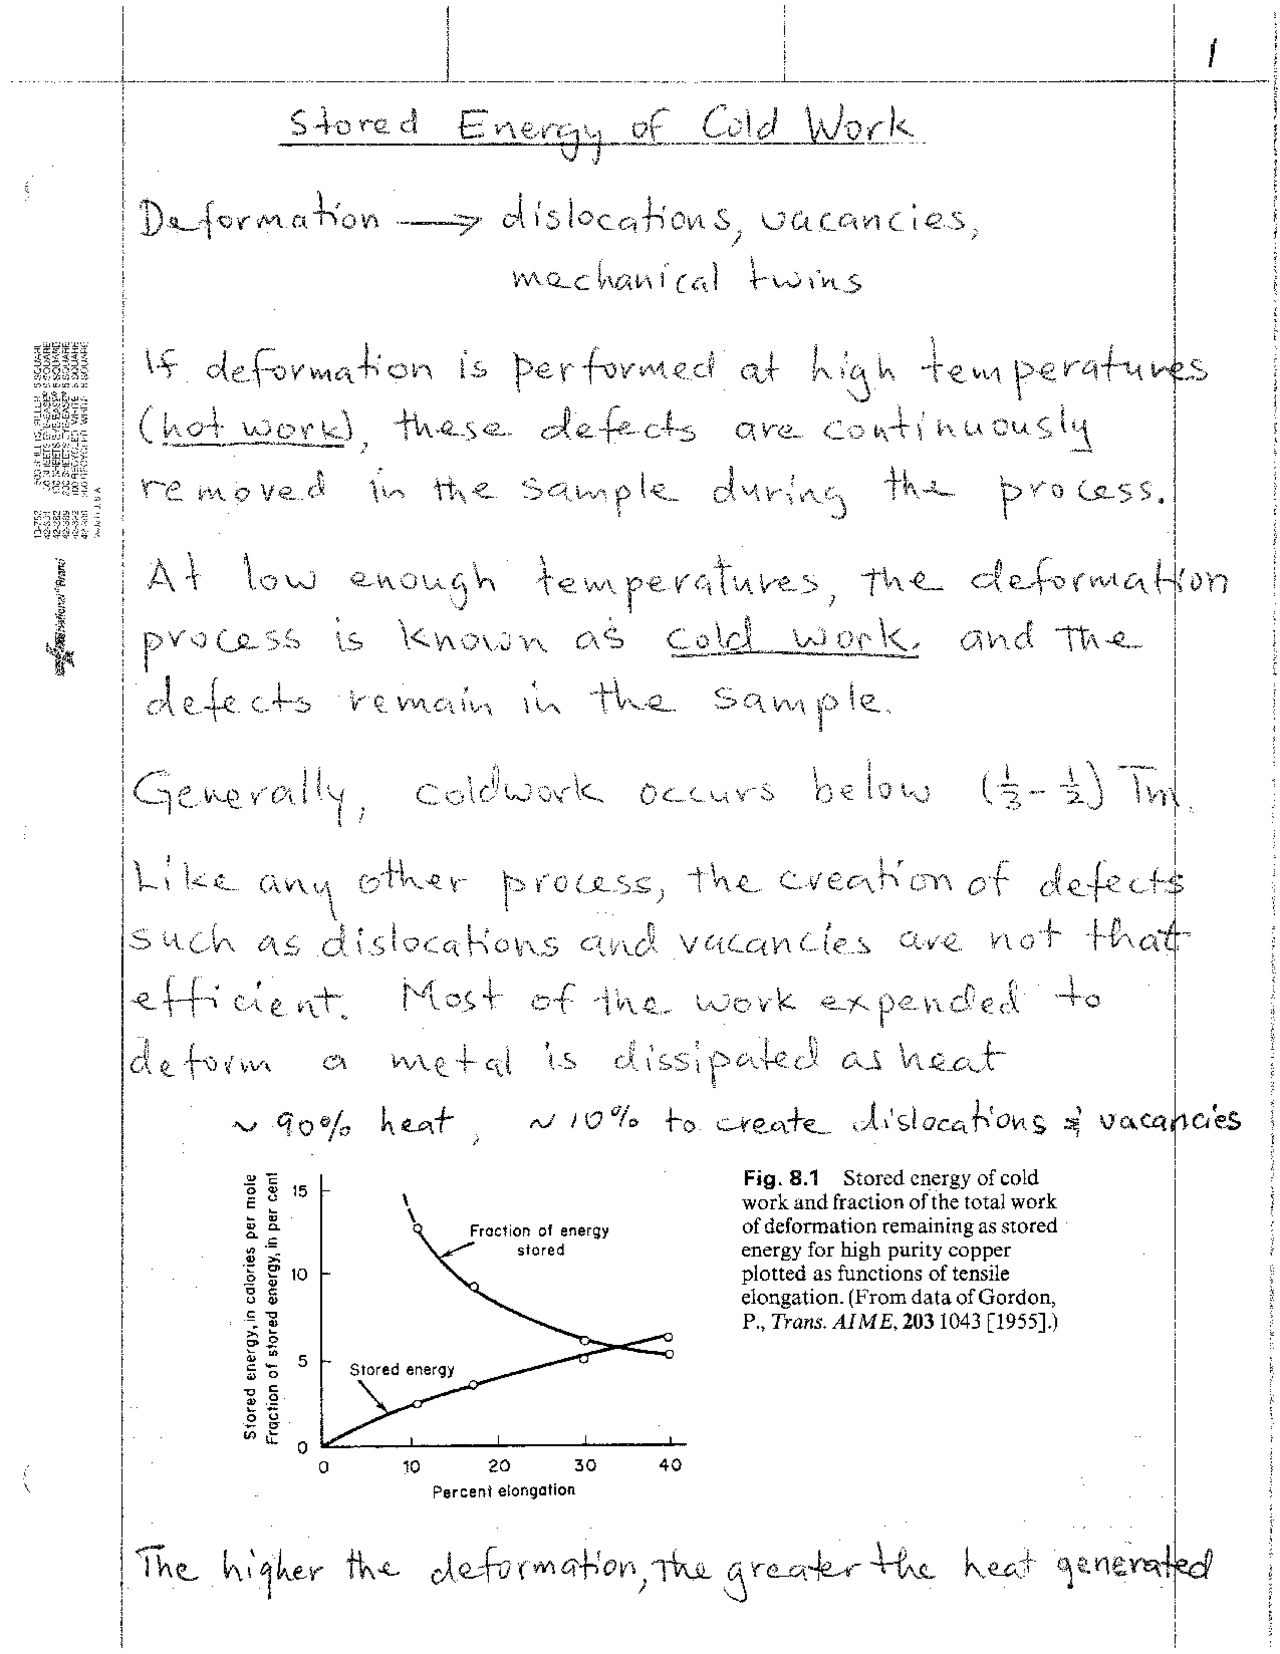 1
Stored Energy of Cold Work
Deformation ⟶ dislocations, vacancies,
mechanical twins
If deformation is performed at high temperatures
(hot work), these defects are continuously
removed in the sample during the process.
At low enough temperatures, the deformation
process is known as cold work. and the
defects remain in the sample.
Generally, coldwork occurs below (1/3 - 1/2) Tm.
Like any other process, the creation of defects
such as dislocations and vacancies are not that
efficient. Most of the work expended to
deform a metal is dissipated as heat
~ 90% heat, ~ 10% to create dislocations & vacancies
Stored energy, in calories per mole
Fraction of stored energy, in per cent
15
10
5
0
Fraction of energy
stored
Stored energy
0 10 20 30 40
Percent elongation
Fig. 8.1 Stored energy of cold
work and fraction of the total work
of deformation remaining as stored
energy for high purity copper
plotted as functions of tensile
elongation. (From data of Gordon,
P., Trans. AIME, 203 1043 [1955].)
The higher the deformation, the greater the heat generated